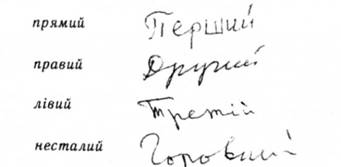 прямий Перший
правий Другий
лівий Третій
несталий Головний